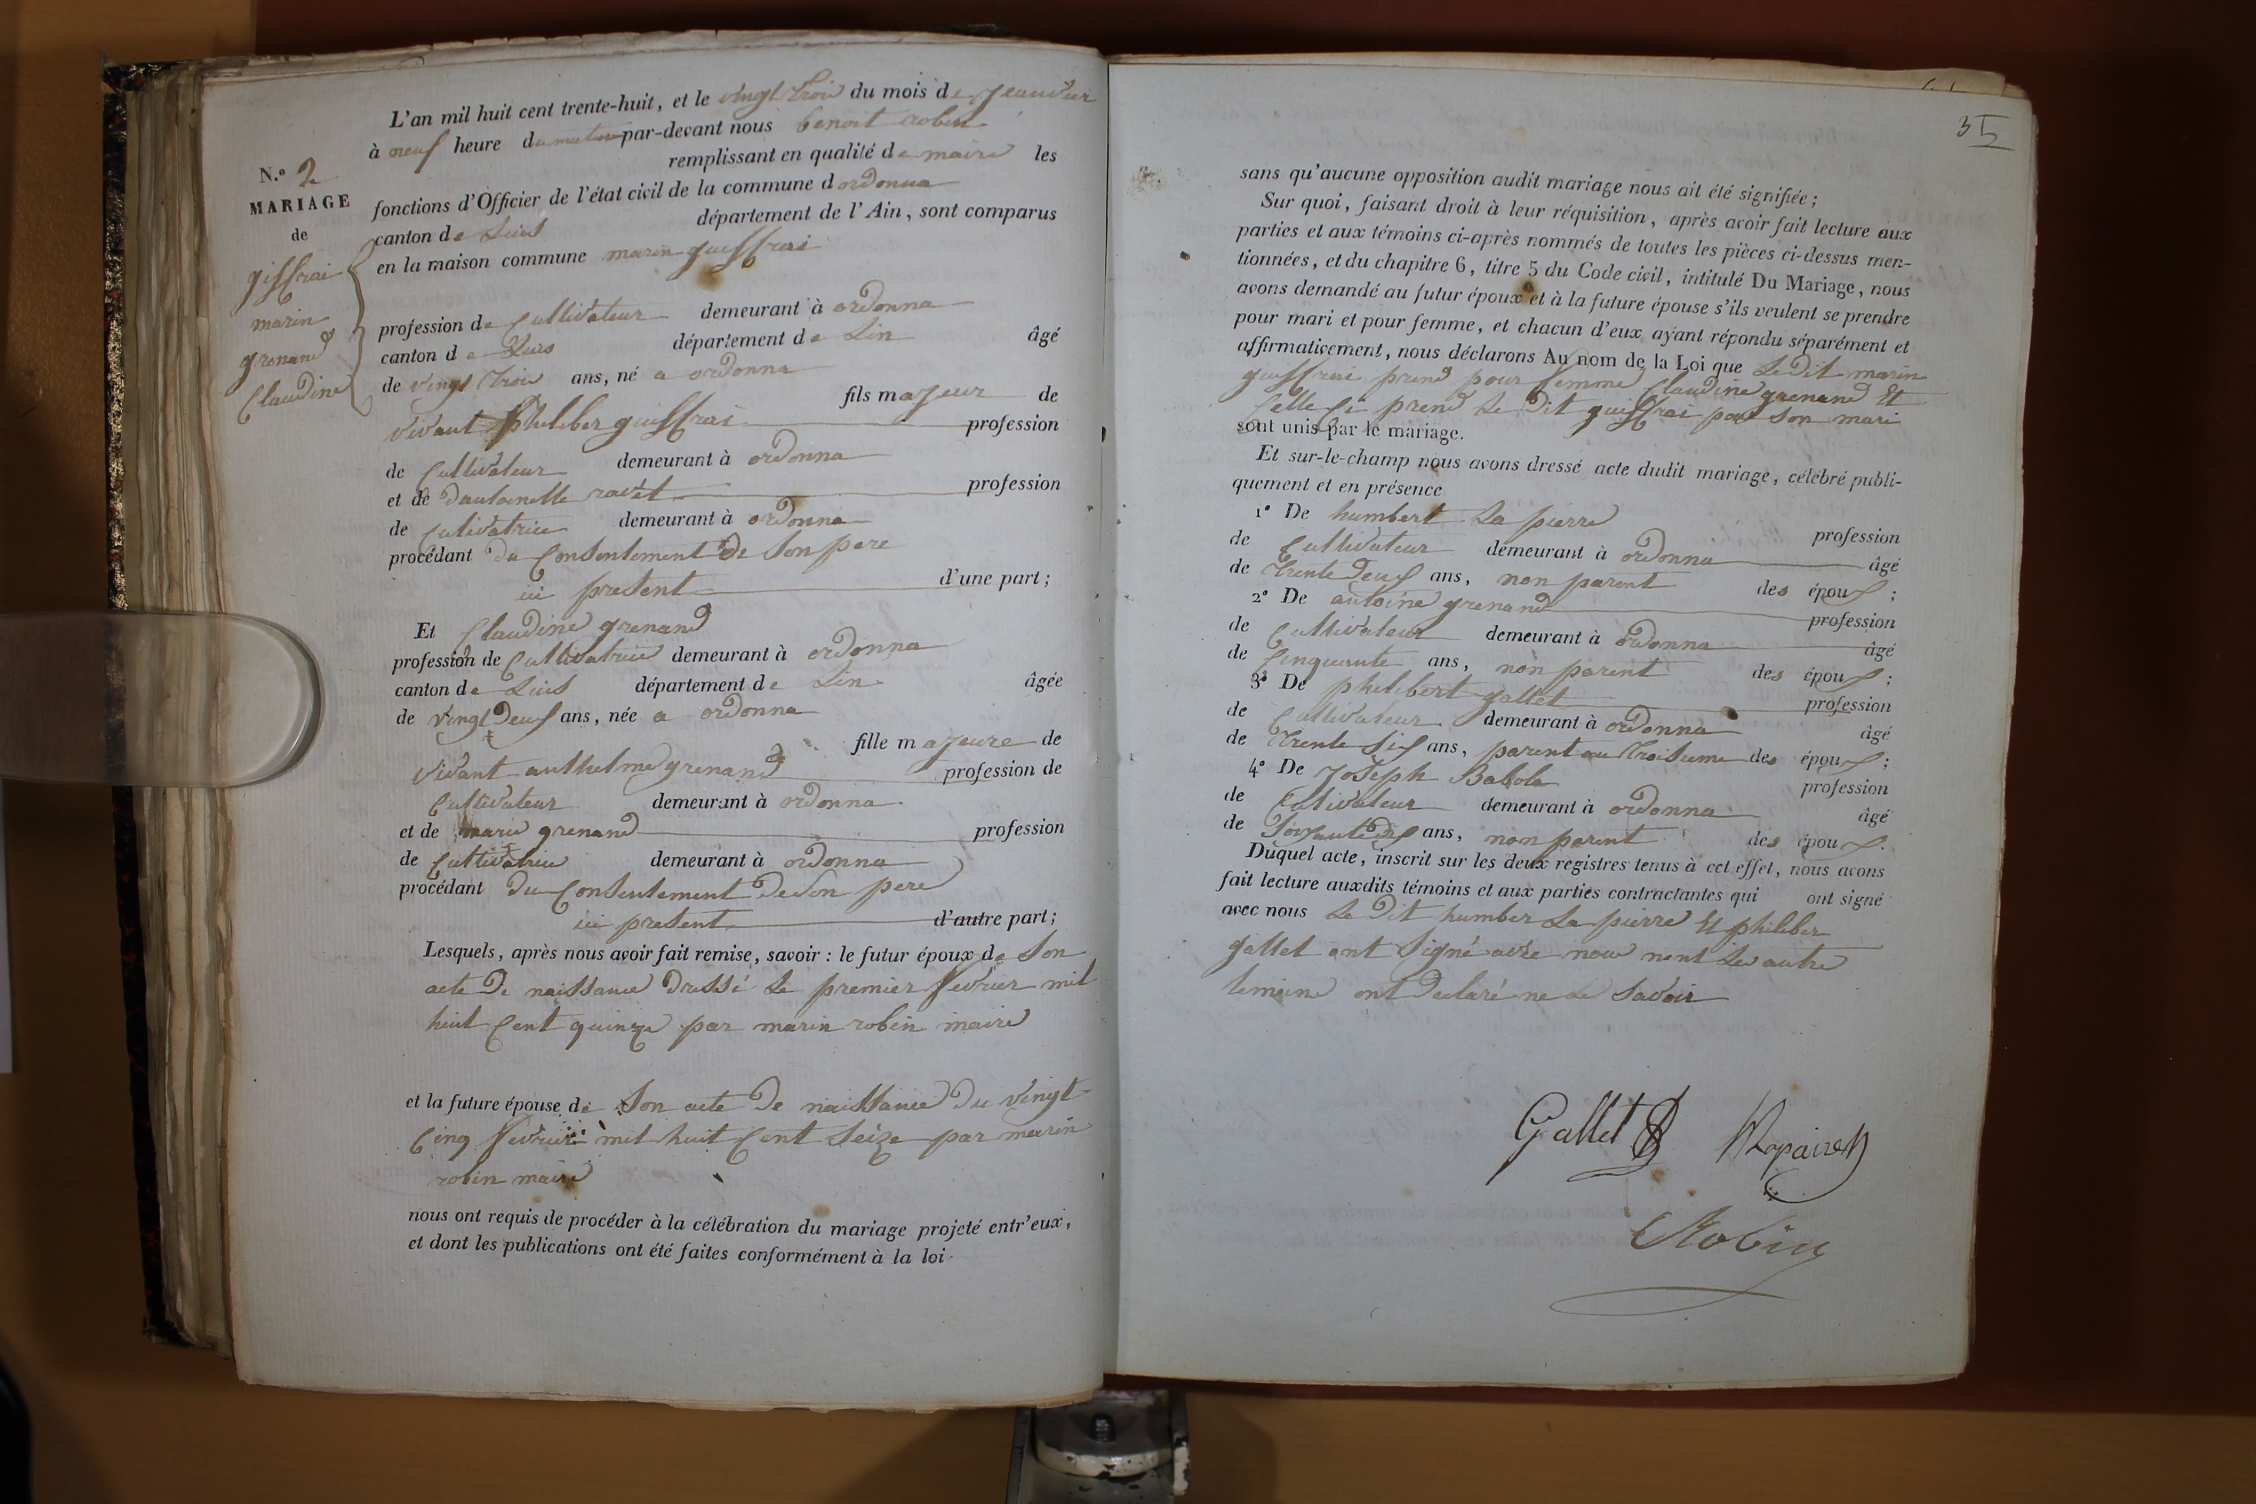 L'an mil huit cent trente-huit, et le vingt trois du mois de jeanvier
à neuf heure du matin par-devant nous benoit robin
remplissant en qualité de maire les
fonctions d'Officier de l'état civil de la commune dordonna
canton de Luis département de l'Ain, sont comparus
en la maison commune marin guiffrai
N.º 2
MARIAGE
de
giffrai
marin
grenand
Claudine
profession de Cultivateur demeurant à ordonna
canton de Luis département de Lin âgé
de vingt trois ans, né a ordonna
fils majeur de
vivant philiber guiffrai profession
de Cultivateur demeurant à ordonna
et de dantoinette ravet profession
de Cutivatrice demeurant à ordonna
procédant du Consentement de son pere
ici present d'une part;
Et Claudine grenand
profession de Cultivatrice demeurant à ordonna
canton de Luis département de Lin âgée
de vingt deus ans, née a ordonna
fille majeure de
vivant anthelme grenand profession de
Cultivateur demeurant à ordonna
et de marie grenand profession
de Cultivatrice demeurant à ordonna
procédant du Consentement de son pere
ici present d'autre part;
Lesquels, après nous avoir fait remise, savoir : le futur époux de son
acte de naissance dressé le premier fevrier mil
huit Cent quinze par marin robin maire
et la future épouse de son acte de naissance du vingt
Cinq fevrier mil huit Cent seize par marin
robin maire
nous ont requis de procéder à la célébration du mariage projeté entr'eux,
et dont les publications ont été faites conformément à la loi
35
sans qu'aucune opposition audit mariage nous ait été signifiée;
Sur quoi, faisant droit à leur réquisition, après avoir fait lecture aux
parties et aux témoins ci-après nommés de toutes les pièces ci-dessus men-
tionnées, et du chapitre 6, titre 5 du Code civil, intitulé Du Mariage, nous
avons demandé au futur époux et à la future épouse s'ils veulent se prendre
pour mari et pour femme, et chacun d'eux ayant répondu séparément et
affirmativement, nous déclarons Au nom de la Loi que Le dit marin
guiffrai prend pour femme Claudine grenand Et
Celle Ci prend Le dit guiffrai pour son mari
sont unis par le mariage.
Et sur-le-champ nous avons dressé acte dudit mariage, célébré publi-
quement et en présence
1º De humbert La pierre profession
de Cultivateur demeurant à ordonna âgé
de trente deus ans, non parent des épous;
2º De antoine grenand profession
de Cultivateur demeurant à ordonna âgé
de Cinquante ans, non parent des épous;
3º De philibert gallet profession
de Cultivateur demeurant à ordonna âgé
de trente sis ans, parent au troisieme des épous;
4º De Joseph Babola profession
de Cutivateur demeurant à ordonna âgé
de ans, non parent des épous.
Duquel acte, inscrit sur les deux registres tenus à cet effet, nous avons
fait lecture auxdits témoins et aux parties contractantes qui ont signé
avec nous Le dit humber La pierre Et philiber
gallet ont signé nous Les autre
temoins ont declaré ne Le savoir
Gallet
Robin